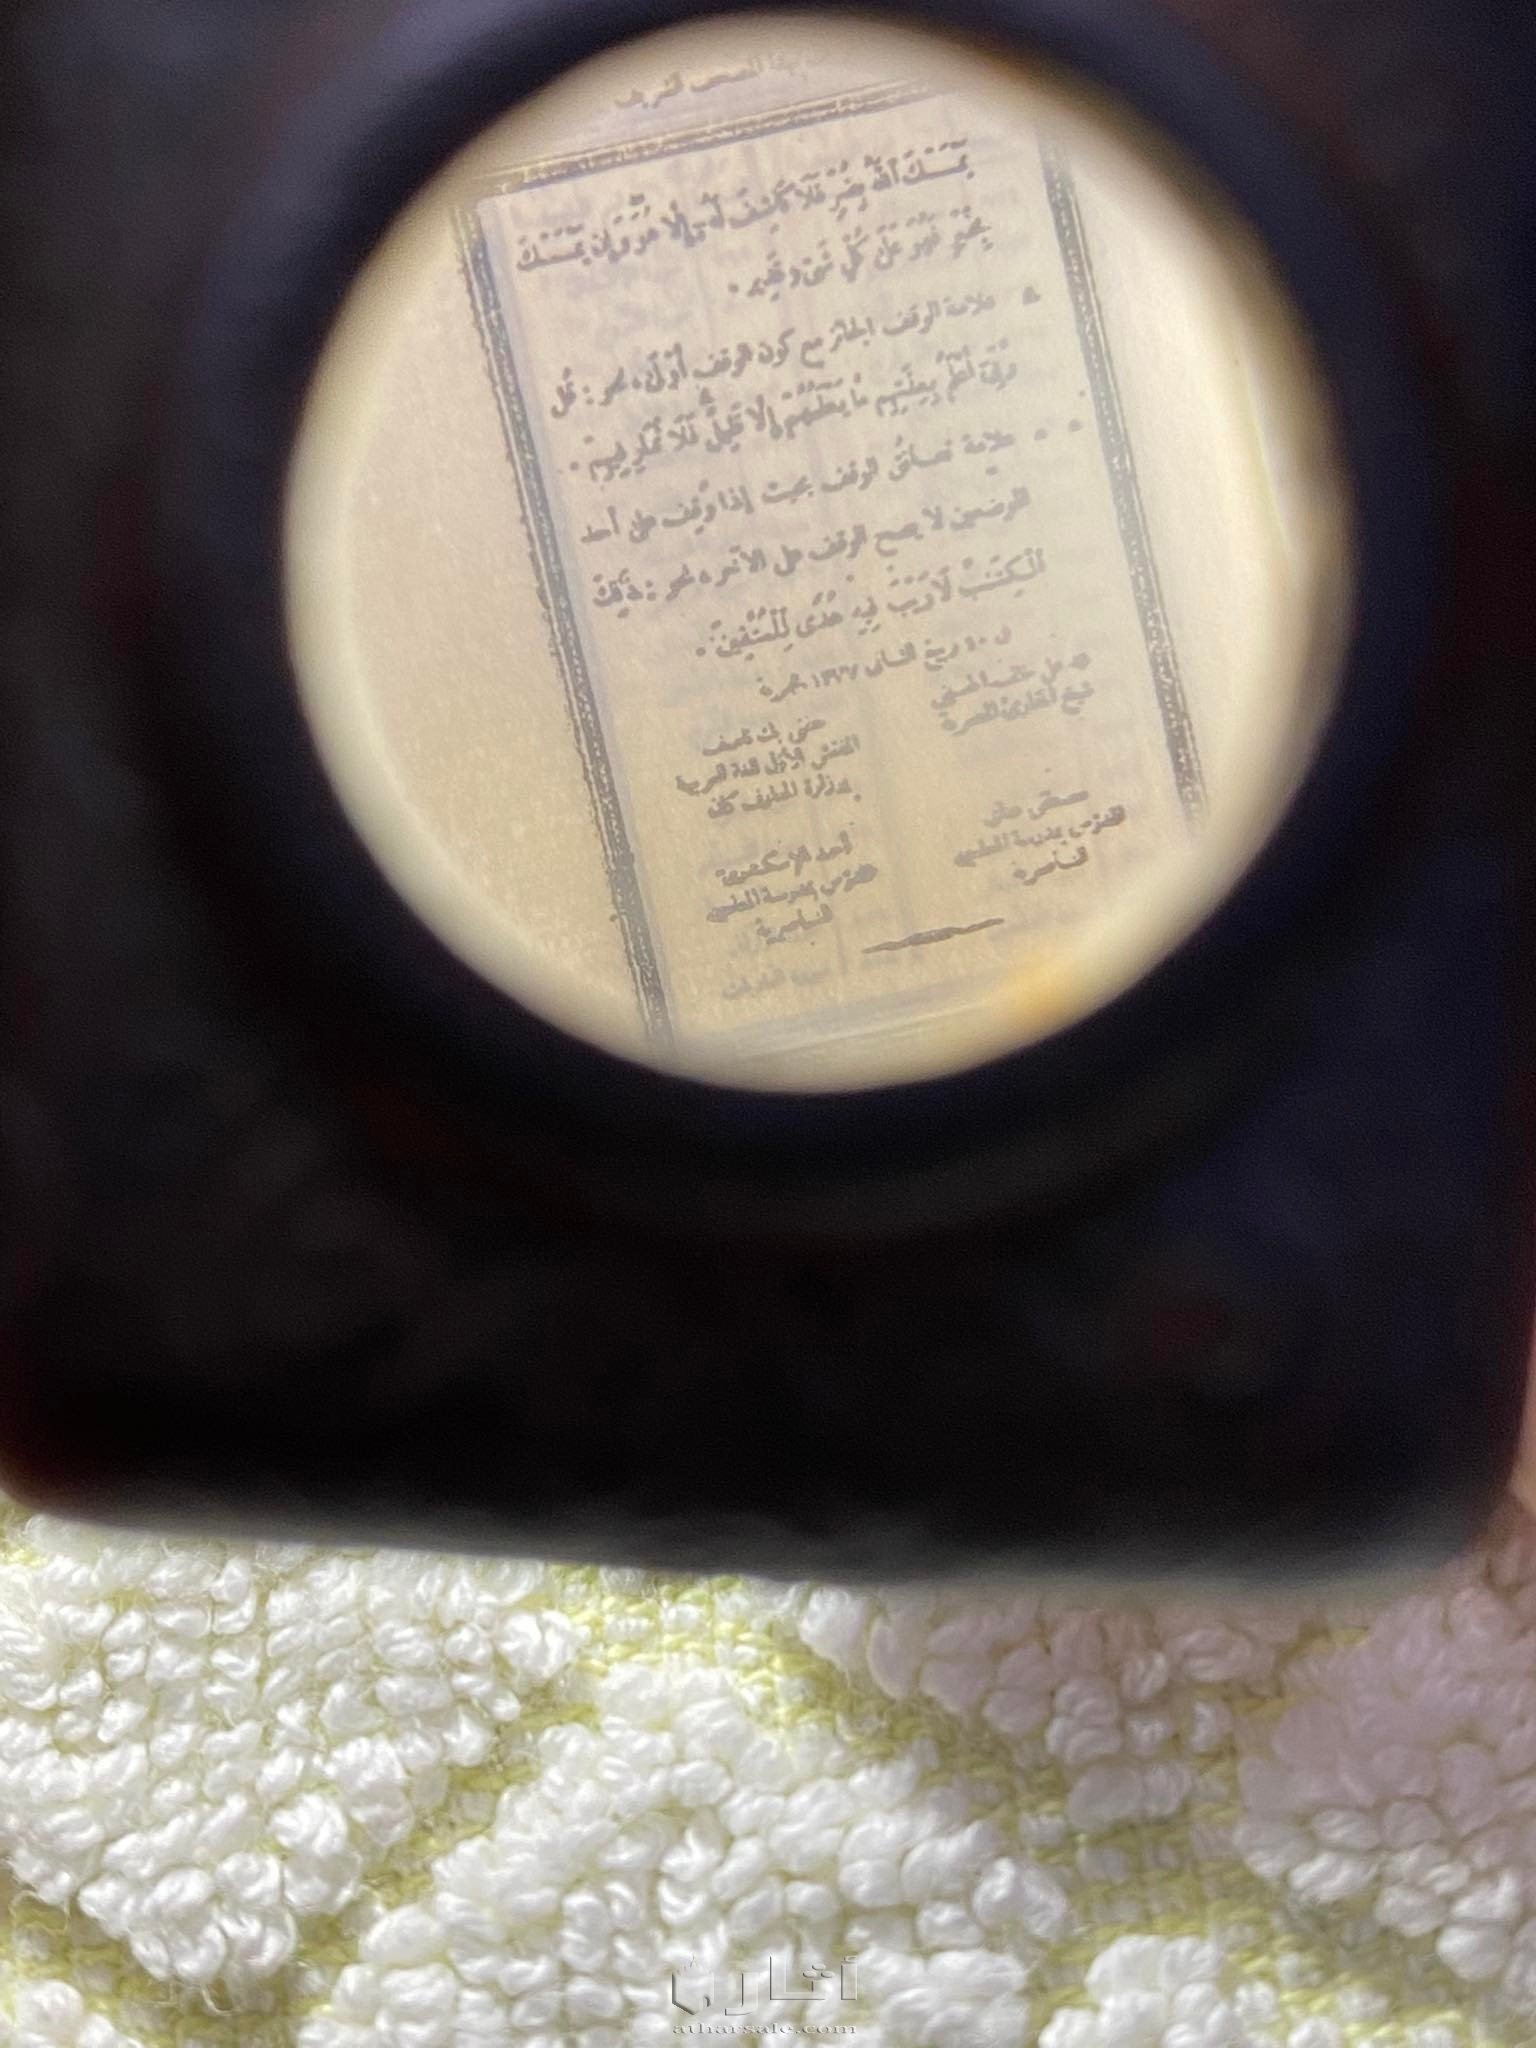 بهذا المصحف الشريف
يَمْسَسْكَ ٱللَّهُ بِضُرٍّ فَلَا كَاشِفَ لَهُۥٓ إِلَّا هُوَ وَإِن يَمْسَسْكَ
بِخَيْرٍ فَهُوَ عَلَىٰ كُلِّ شَىْءٍ قَدِيرٌ .
علامة الوقف الجائز مع كون الوقف أَوْلَى، نحو : قُل
رَّبِّىٓ أَعْلَمُ بِعِدَّتِهِم مَّا يَعْلَمُهُمْ إِلَّا قَلِيلٌ فَلَا تُمَارِ فِيهِمْ .
علامة تعانُق الوقف بحيث إذا وُقِف على أحد
الموضعين لا يصح الوقف على الآخر، نحو : ذَٰلِكَ
ٱلْكِتَٰبُ لَا رَيْبَ فِيهِ هُدًى لِّلْمُتَّقِينَ .
فى ١٠ ربيع الثانى ١٣٣٧ هجرة
محمد على خلف الحسينى
شيخ المقارئ المصرية
حفنى بك ناصف
المفتش الأول للغة العربية
بوزارة المعارف
مصطفى عنانى
المدرّس بمدرسة المعلمين
الناصرية
أحمد الإسكندرى
المدرّس بمدرسة المعلمين
الناصرية
أثارى
atharsale.com